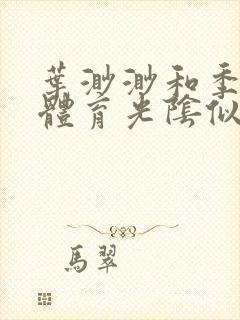 葉渺渺和季
體育老陰似
馬翠